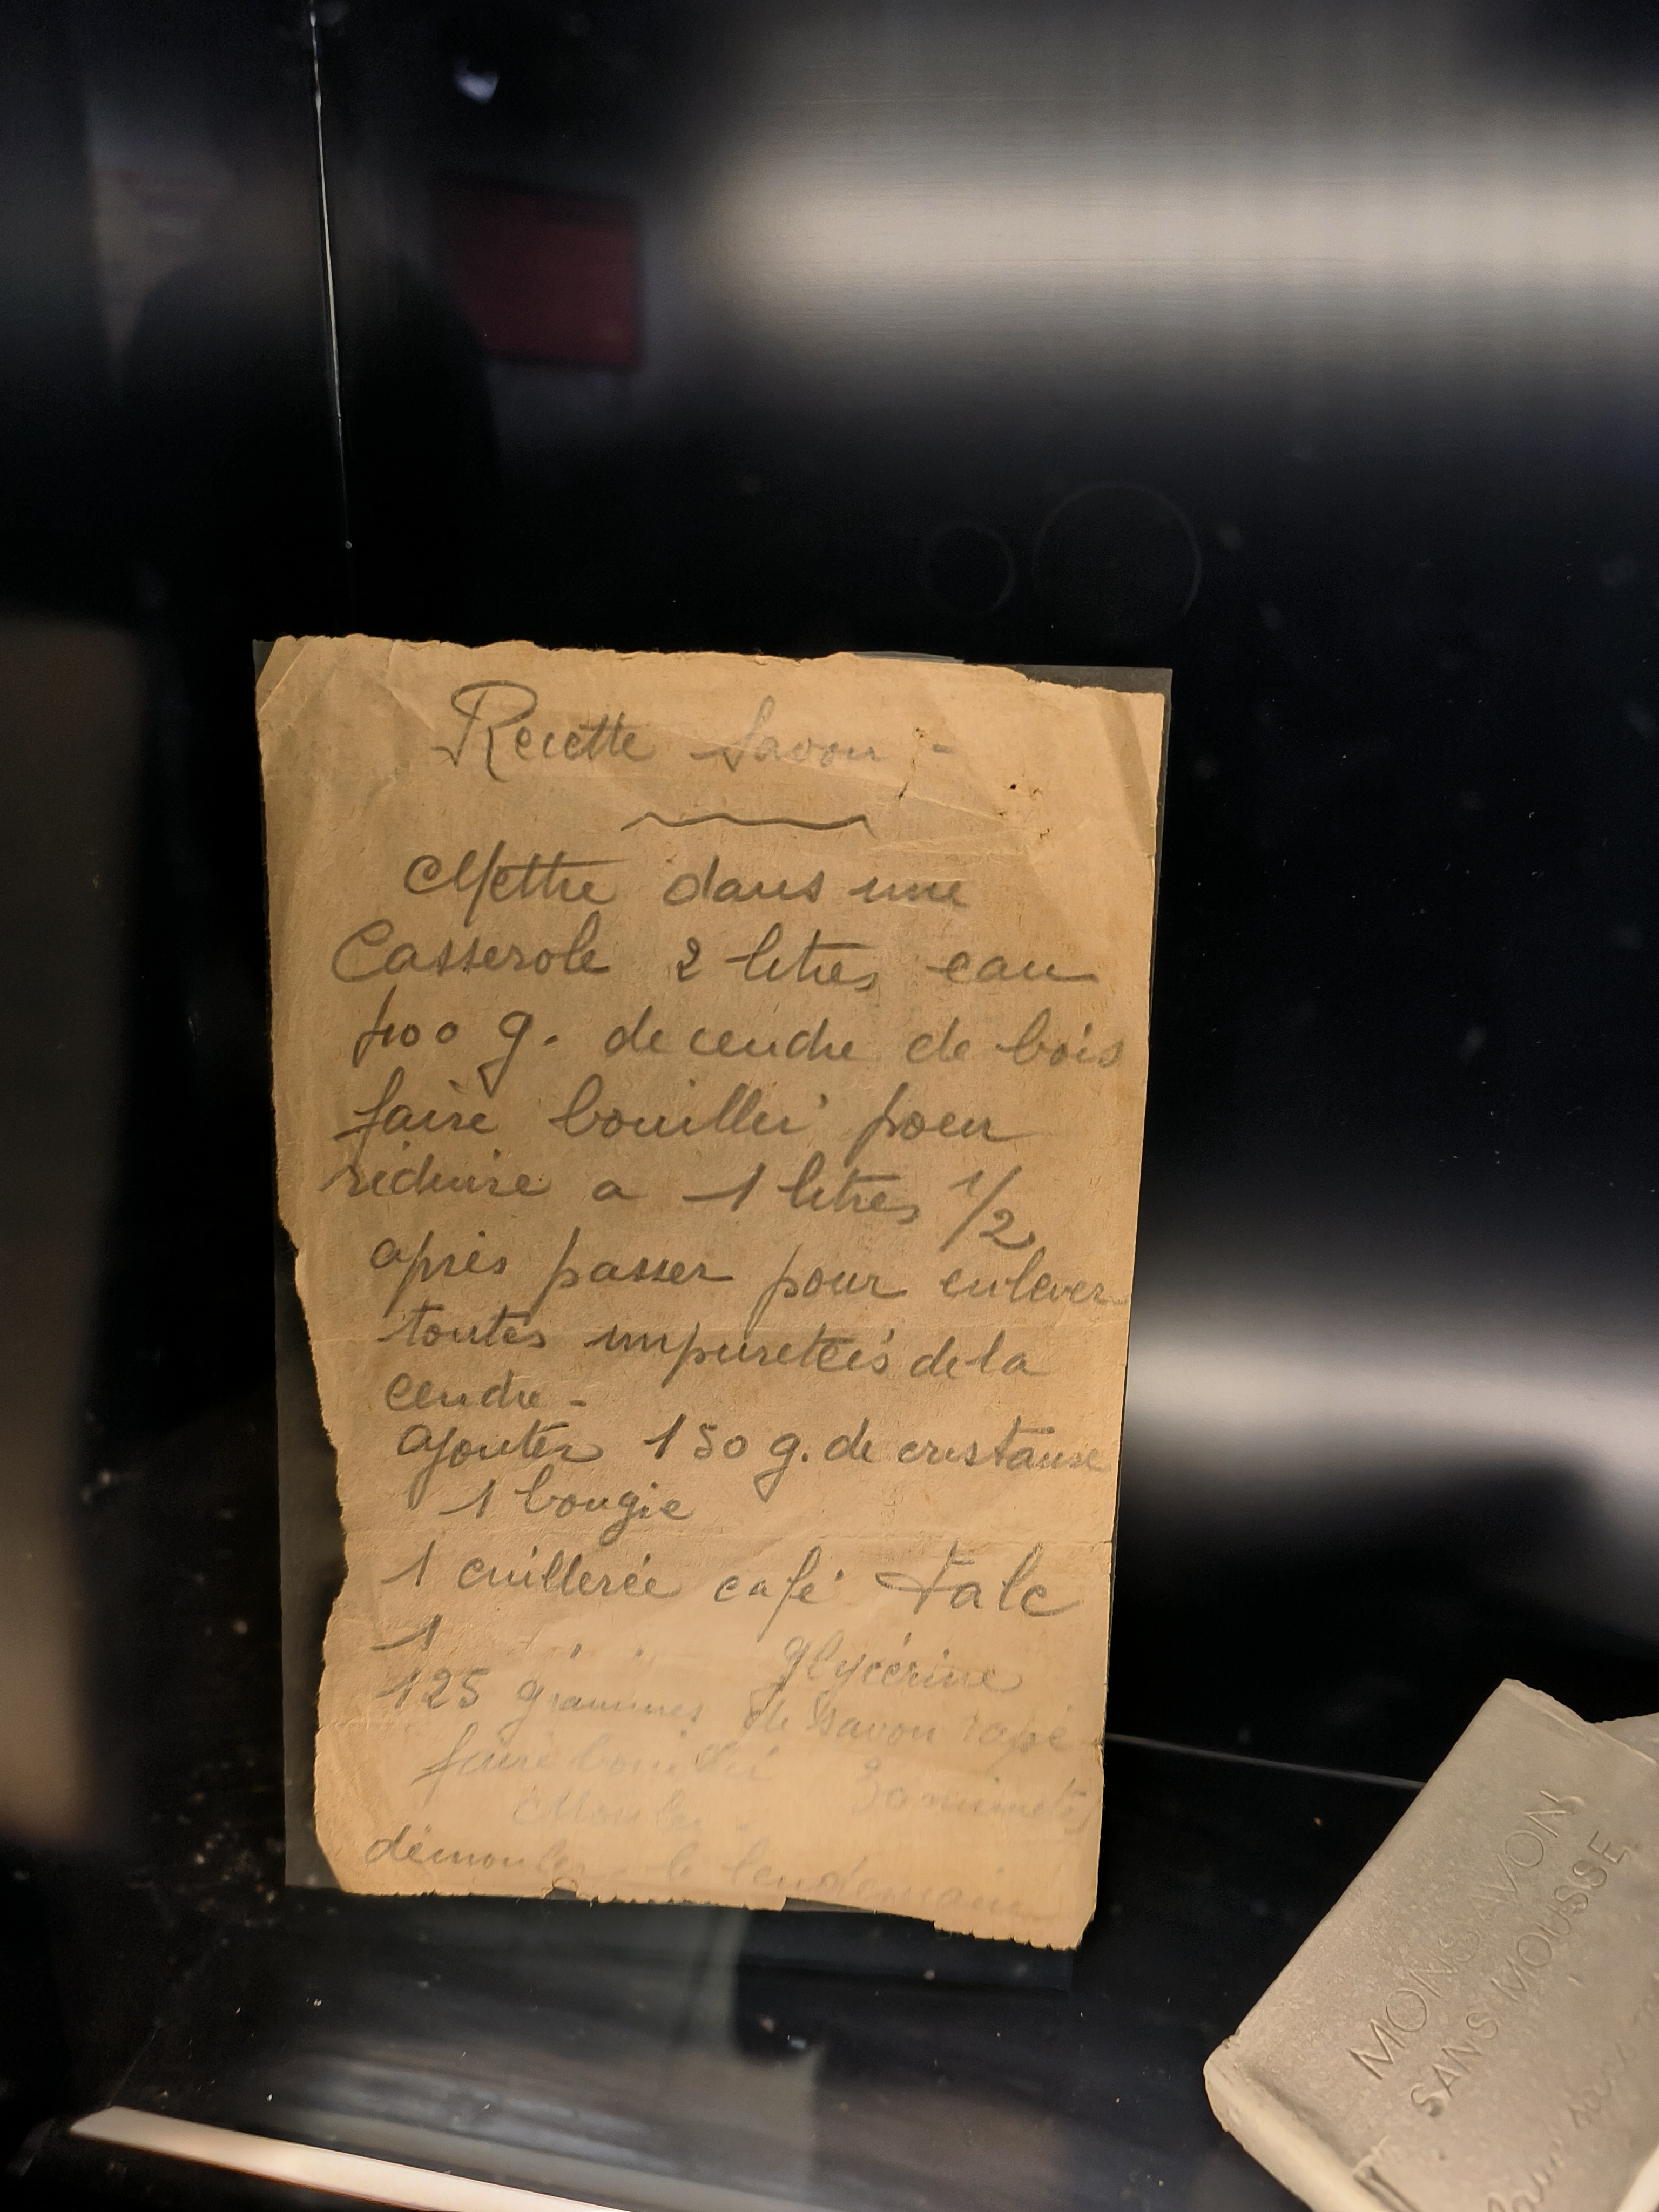 Recette Savon -
Mettre dans une
Casserole 2 litres eau
g. de cendre de bois
faire bouillir pour
réduire a 1 litres 1/2
après passer pour enlever
toutes impuretées de la
cendre -
ajouter 150 g. de cristause
1 bougie
1 cuillerée café talc
1 " " glycérine
125 grammes de savon rapé
faire bouillir 30 minutes
démouler le lendemain
MONSAVON
SANS MOUSSE